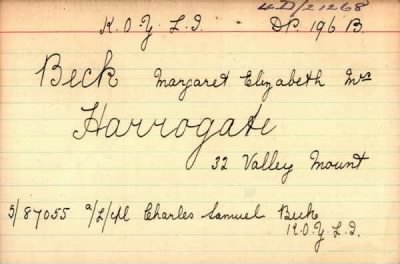 4D/21268
K.O.Y.L.I. DP. 196 B.
Beck Margaret Elizabeth Mrs
Harrogate
32 Valley Mount
5/87055 a/L/Cpl Charles Samuel Beck
K.O.Y.L.I.